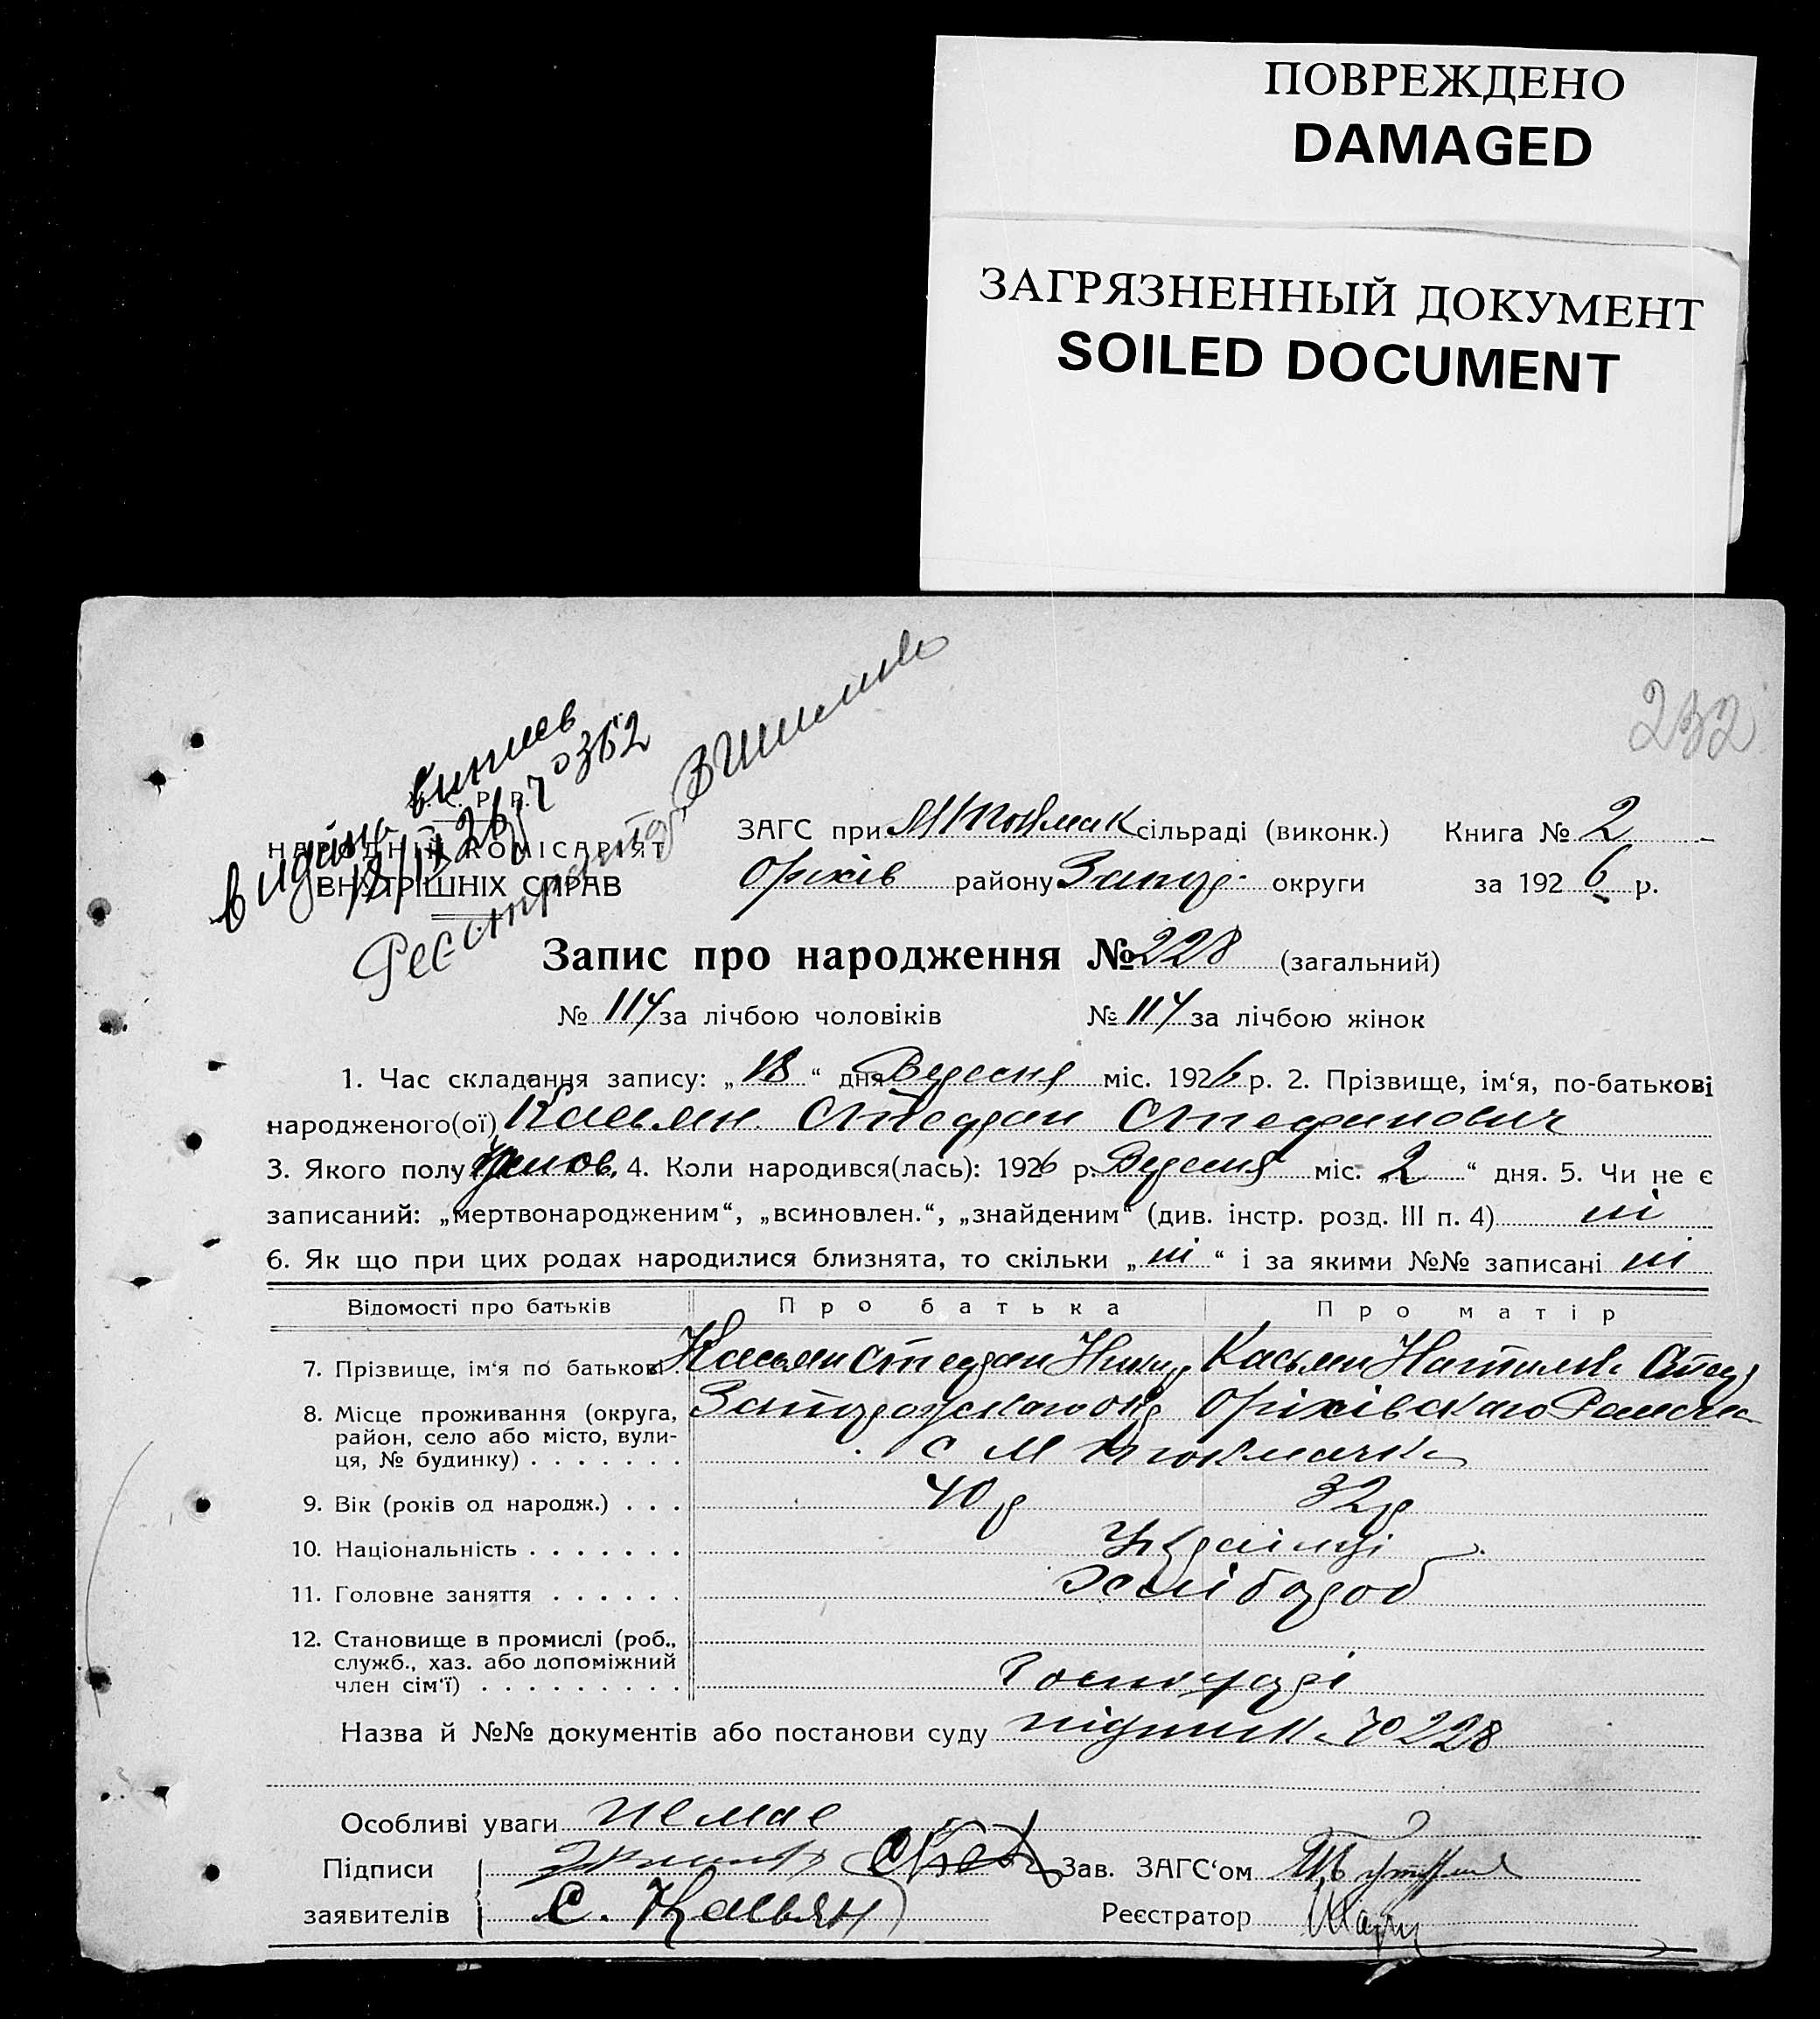 ПОВРЕЖДЕНО
DAMAGED
ЗАГРЯЗНЕННЫЙ ДОКУМЕНТ
SOILED DOCUMENT
232
Видано виписв
18/IX 26 р № 362
Реєстратор
У. С. Р. Р.
НАРОДНІЙ КОМІСАРІЯТ
ВНУТРІШНІХ СПРАВ
ЗАГС при М Токмак сільраді (виконк.) Книга № 2
Оріхів району Запор. округи за 1926 р.
Запис про народження № 228 (загальний)
№ 114 за лічбою чоловіків № 114 за лічбою жінок
1. Час складання запису: „18“ дня Вересня міс. 1926 р. 2. Прізвище, ім‘я, по-батькові
народженого(ої) Касьян Стефан Стефанович
3. Якого полу 4. Коли народився(лась): 1926 р. Вересня міс. „2“ дня. 5. Чи не є
записаний: „мертвонародженим“, „всиновлен.“, „знайденим“ (див. інстр. розд. III п. 4) ні
6. Як що при цих родах народилися близнята, то скільки „ні“ і за якими №№ записані ні
Відомості про батьків Про батька Про матір
7. Прізвище, ім‘я по батькові Касьян Стефан Касьян Наталія
8. Місце проживання (округа, Запорожского окр Оріхівского
район, село або місто, вули-
ця, № будинку) . . . . . . . с М Токмачка
9. Вік (років од народж.) . . . 40 р 32 р
10. Національність . . . . . . . Українці
11. Головне заняття . . . . . . Хлібороб
12. Становище в промислі (роб.,
служб., хаз. або допоміжний
член сім‘ї) . . . . . . . . . Господарі
Назва й №№ документів або постанови суду № 228
Особливі уваги немає
Підписи Зав. ЗАГС‘ом
заявителів С. Касьян Реєстратор